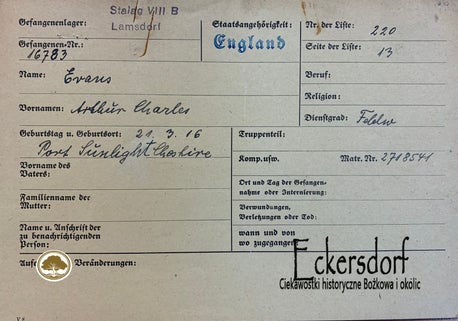 Gefangenenlager: Stalag VIII B
Lamsdorf
Gefangenen-Nr.: 16783
Staatsangehörigkeit:
England
Nr. der Liste: 220
Seite der Liste: 13
Name: Evans
Vornamen: Arthur Charles
Beruf:
Religion:
Dienstgrad: Feldw
Geburtstag u. Geburtsort: 21. 3. 16
Port Sunlight Cheshire
Truppenteil:
Komp. usw. Matr. Nr. 2718541
Vorname des
Vaters:
Familienname der
Mutter:
Name u. Anschrift der
zu benachrichtigenden
Person:
Ort und Tag der Gefangen-
nahme oder Internierung:
Verwundungen,
Verletzungen oder Tod:
wann und von
wo zugegangen
Veränderungen:
Eckersdorf
Ciekawostki historyczne Bożkowa i okolic